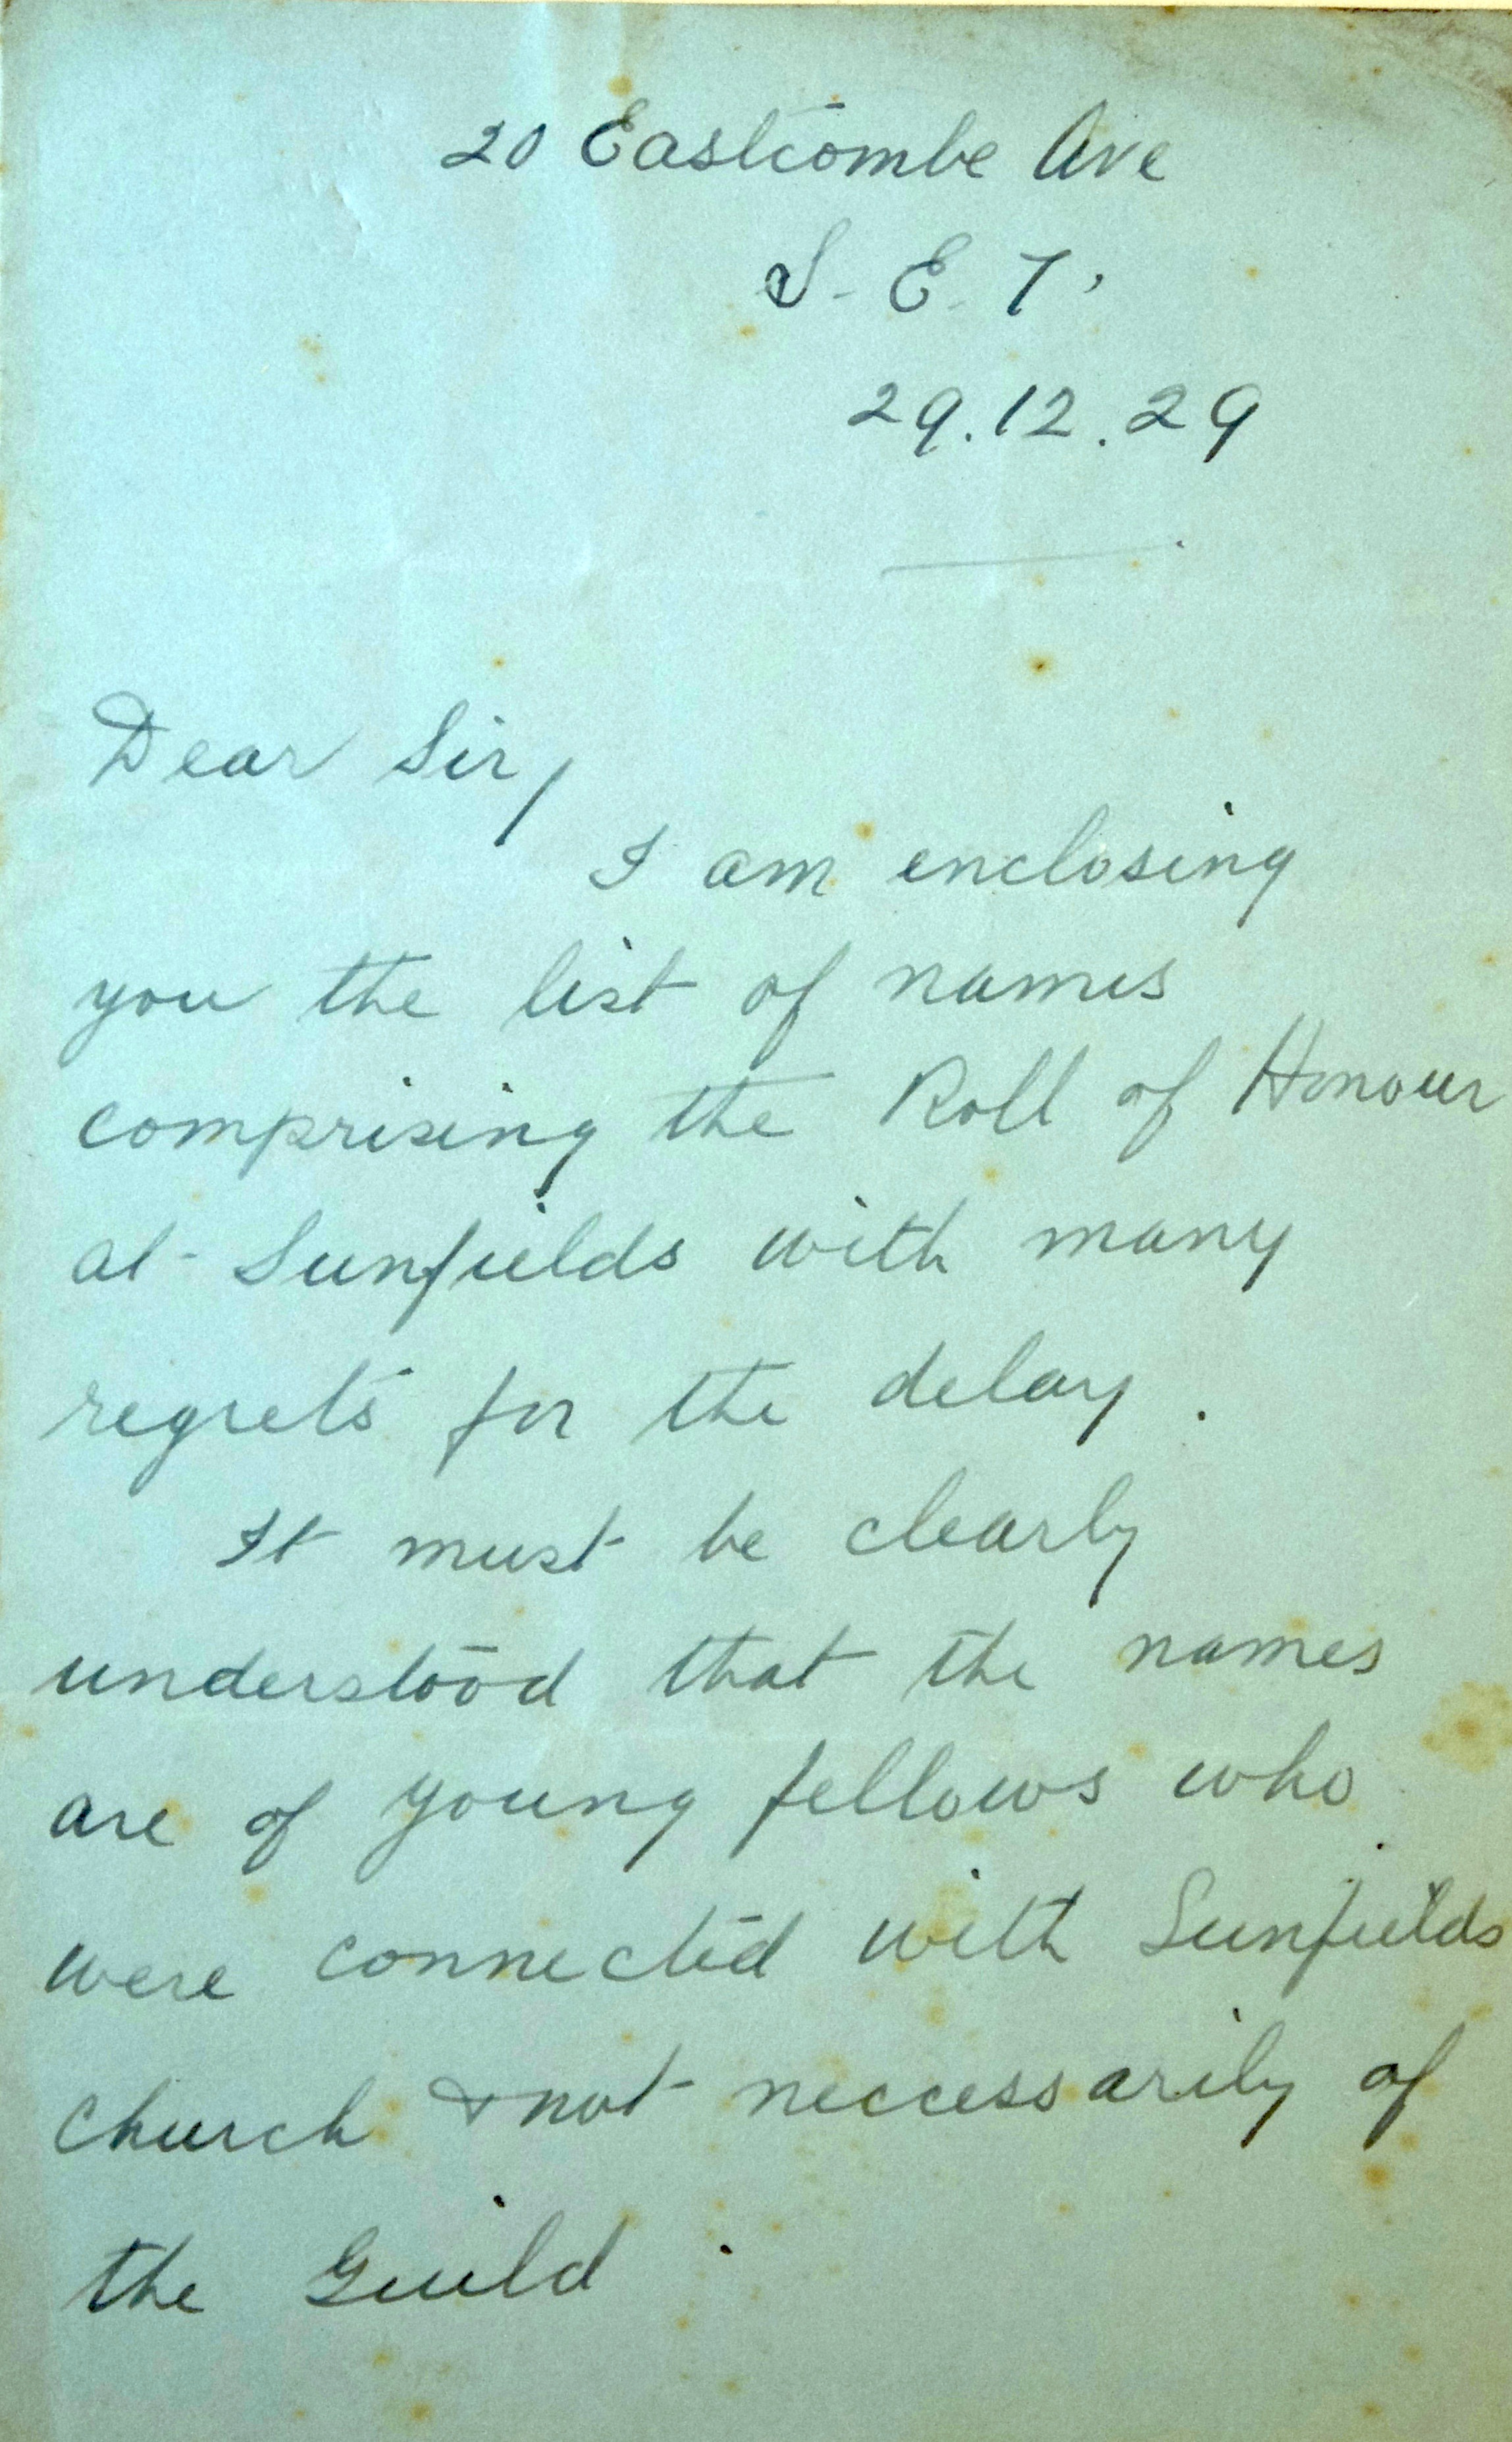 20 Eastcombe Ave
S. E. 7.
29.12.29
Dear Sir,
I am enclosing
you the list of names
comprising the Roll of Honour
at Sunfields with many
regrets for the delay.
It must be clearly
understood that the names
are of young fellows who
were connected with Sunfields
Church & not neccessarily of
the Guild.